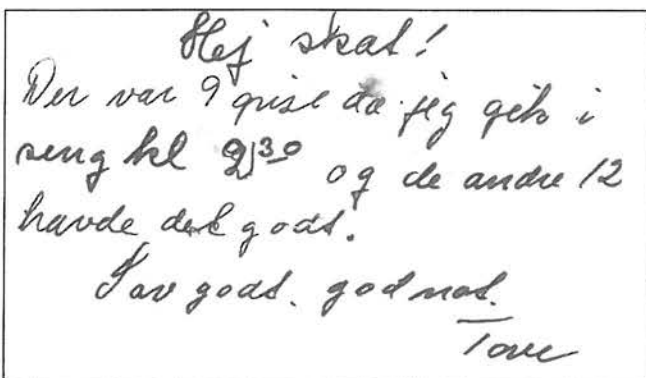 Hej skat!
Der var 9 grise da jeg gik i
seng kl 21³⁰ og de andre 12
havde det godt.
Sov godt. god nat.
Tove